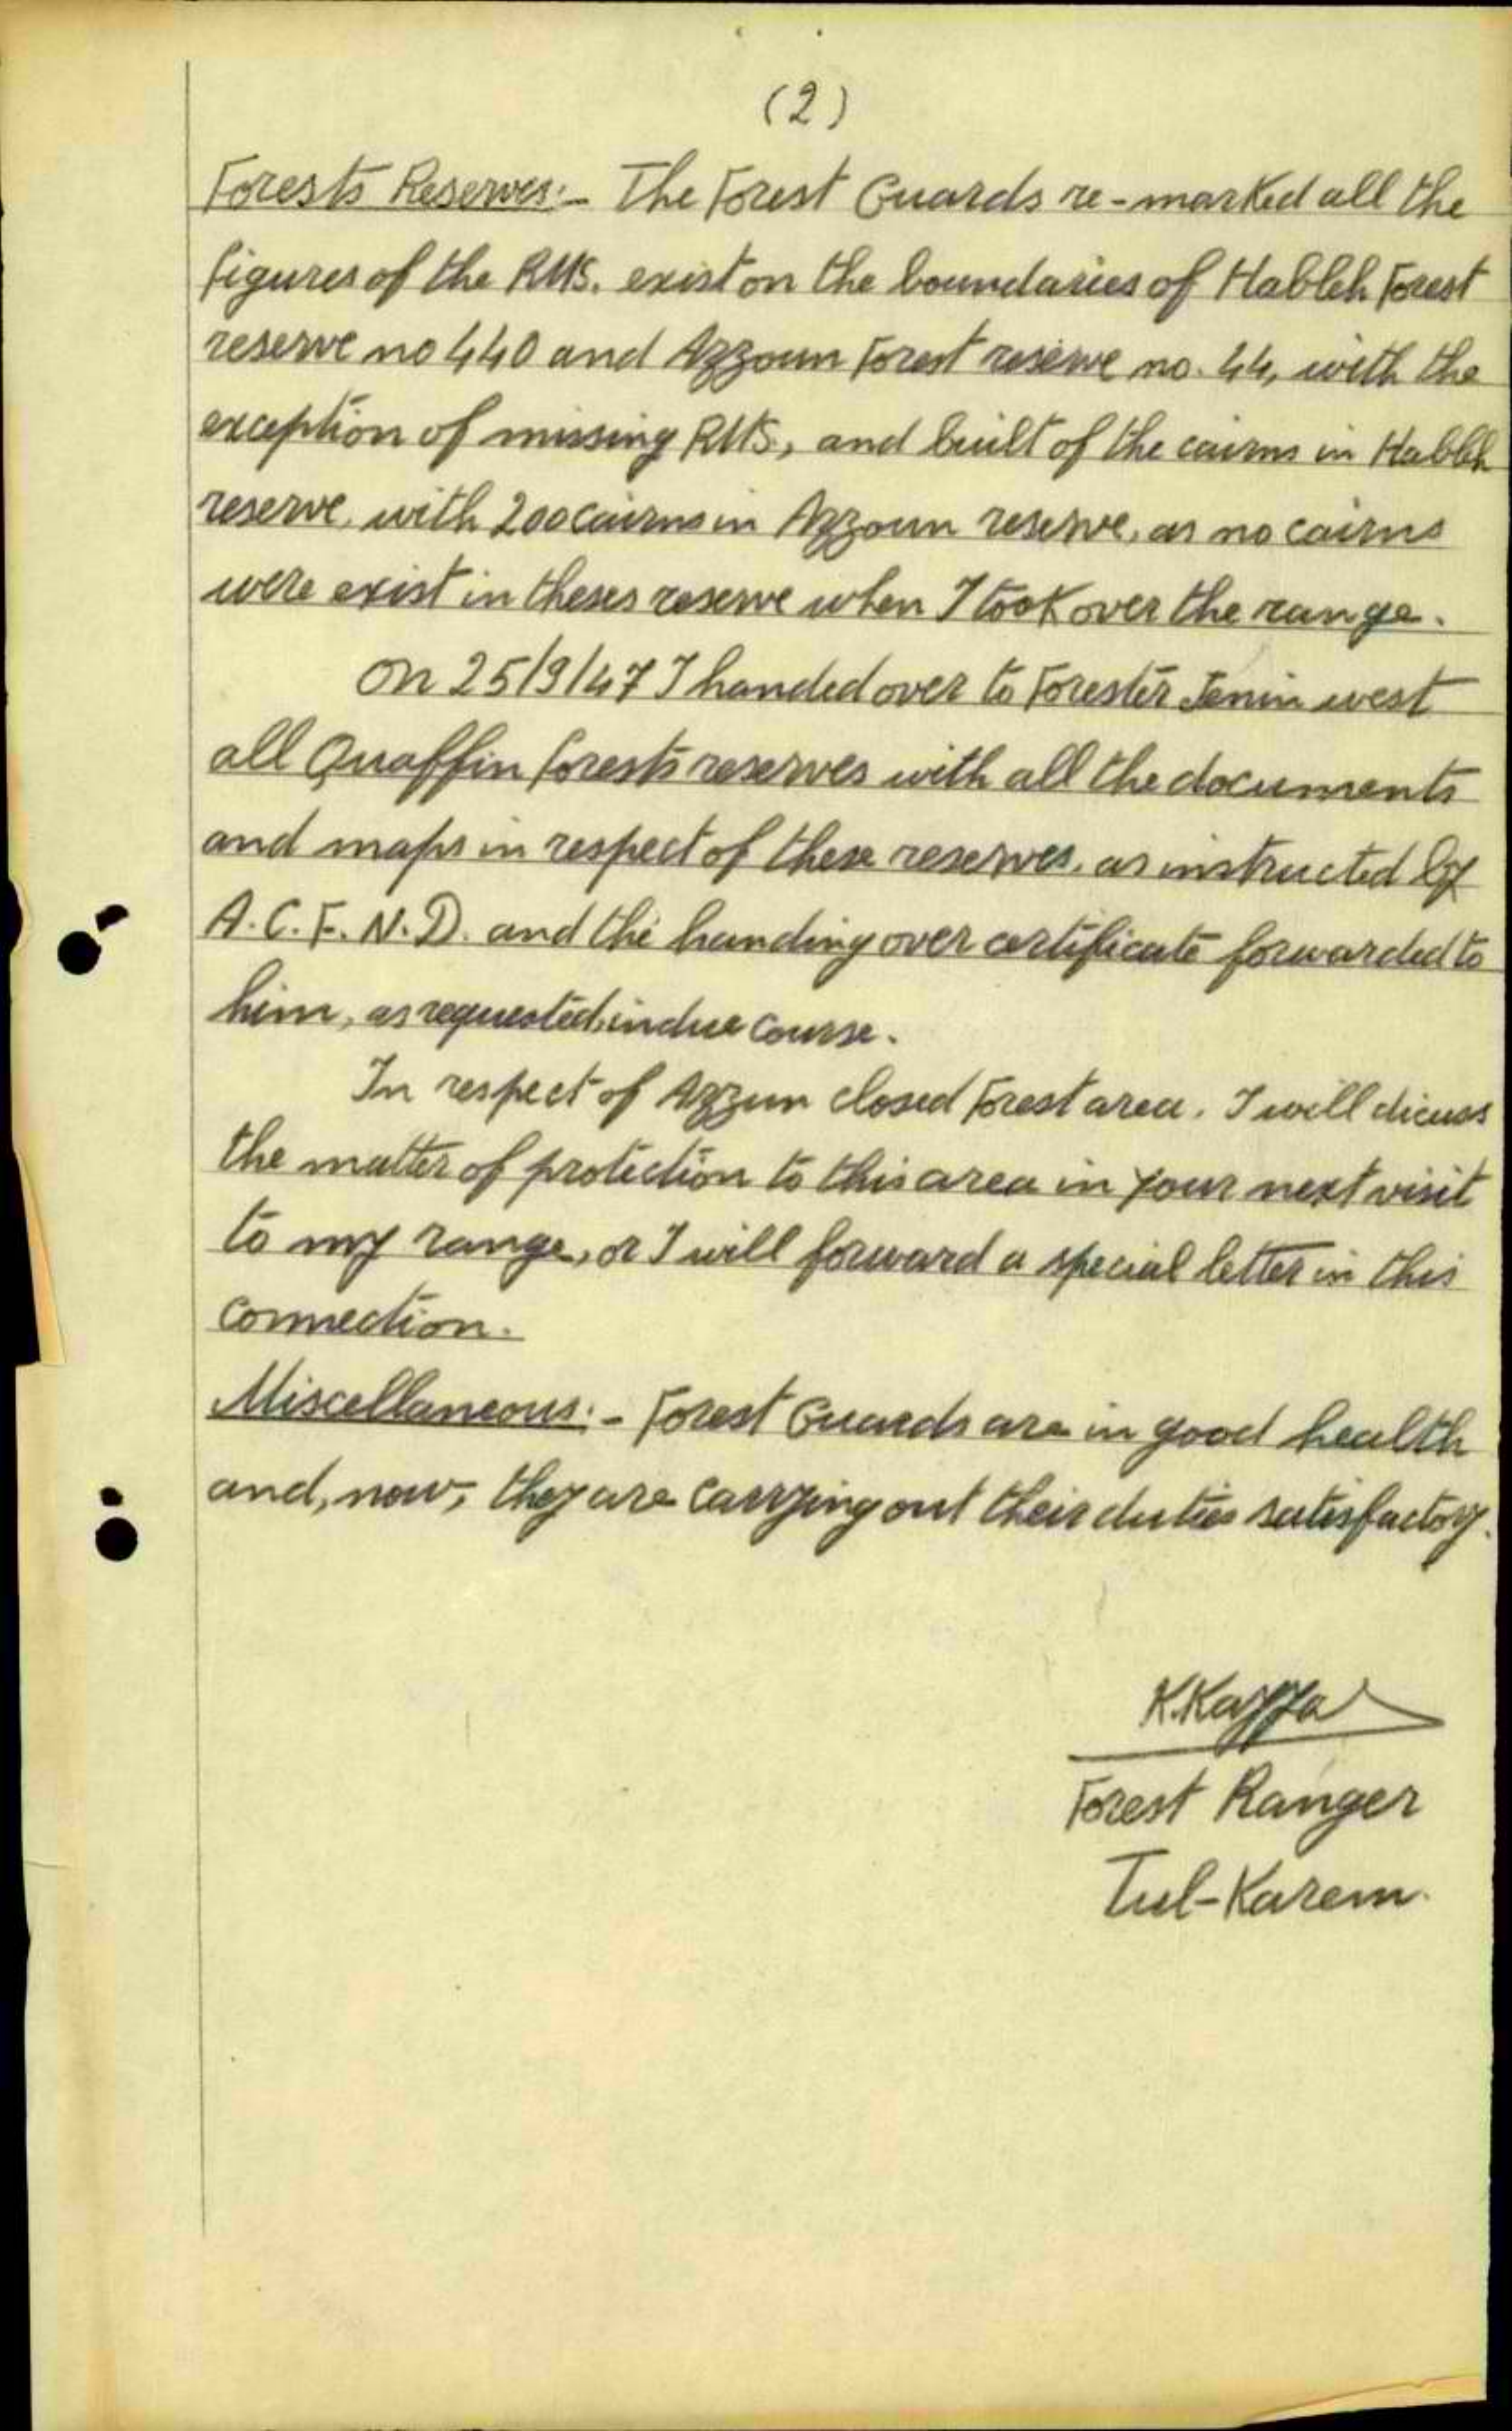 (2)
Forests Reserves:- The Forest Guards re-marked all the
figures of the RMS. exist on the boundaries of Hableh Forest
reserve no 440 and Azzoun Forest reserve no. 44, with the
exception of missing RMS, and built of the cairns in Hableh
reserve, with 200 cairns in Azzoun reserve, as no cairns
were exist in theses reserve when I took over the range.
On 25/9/47 I handed over to Forester Jenin west
all Quaffin forests reserves with all the documents
and maps in respect of these reserves, as instructed by
A.C.F. N.D. and the handing over certificate forwarded to
him, as requested, in due course.
In respect of Azzun closed Forest area. I will dicuss
the matter of protection to this area in your next visit
to my range, or I will forward a special letter in this
connection.
Miscellaneous:- Forest Guards are in good health
and, now, they are carrying out their duties satisfactory.
Forest Ranger
Tul-Karem.